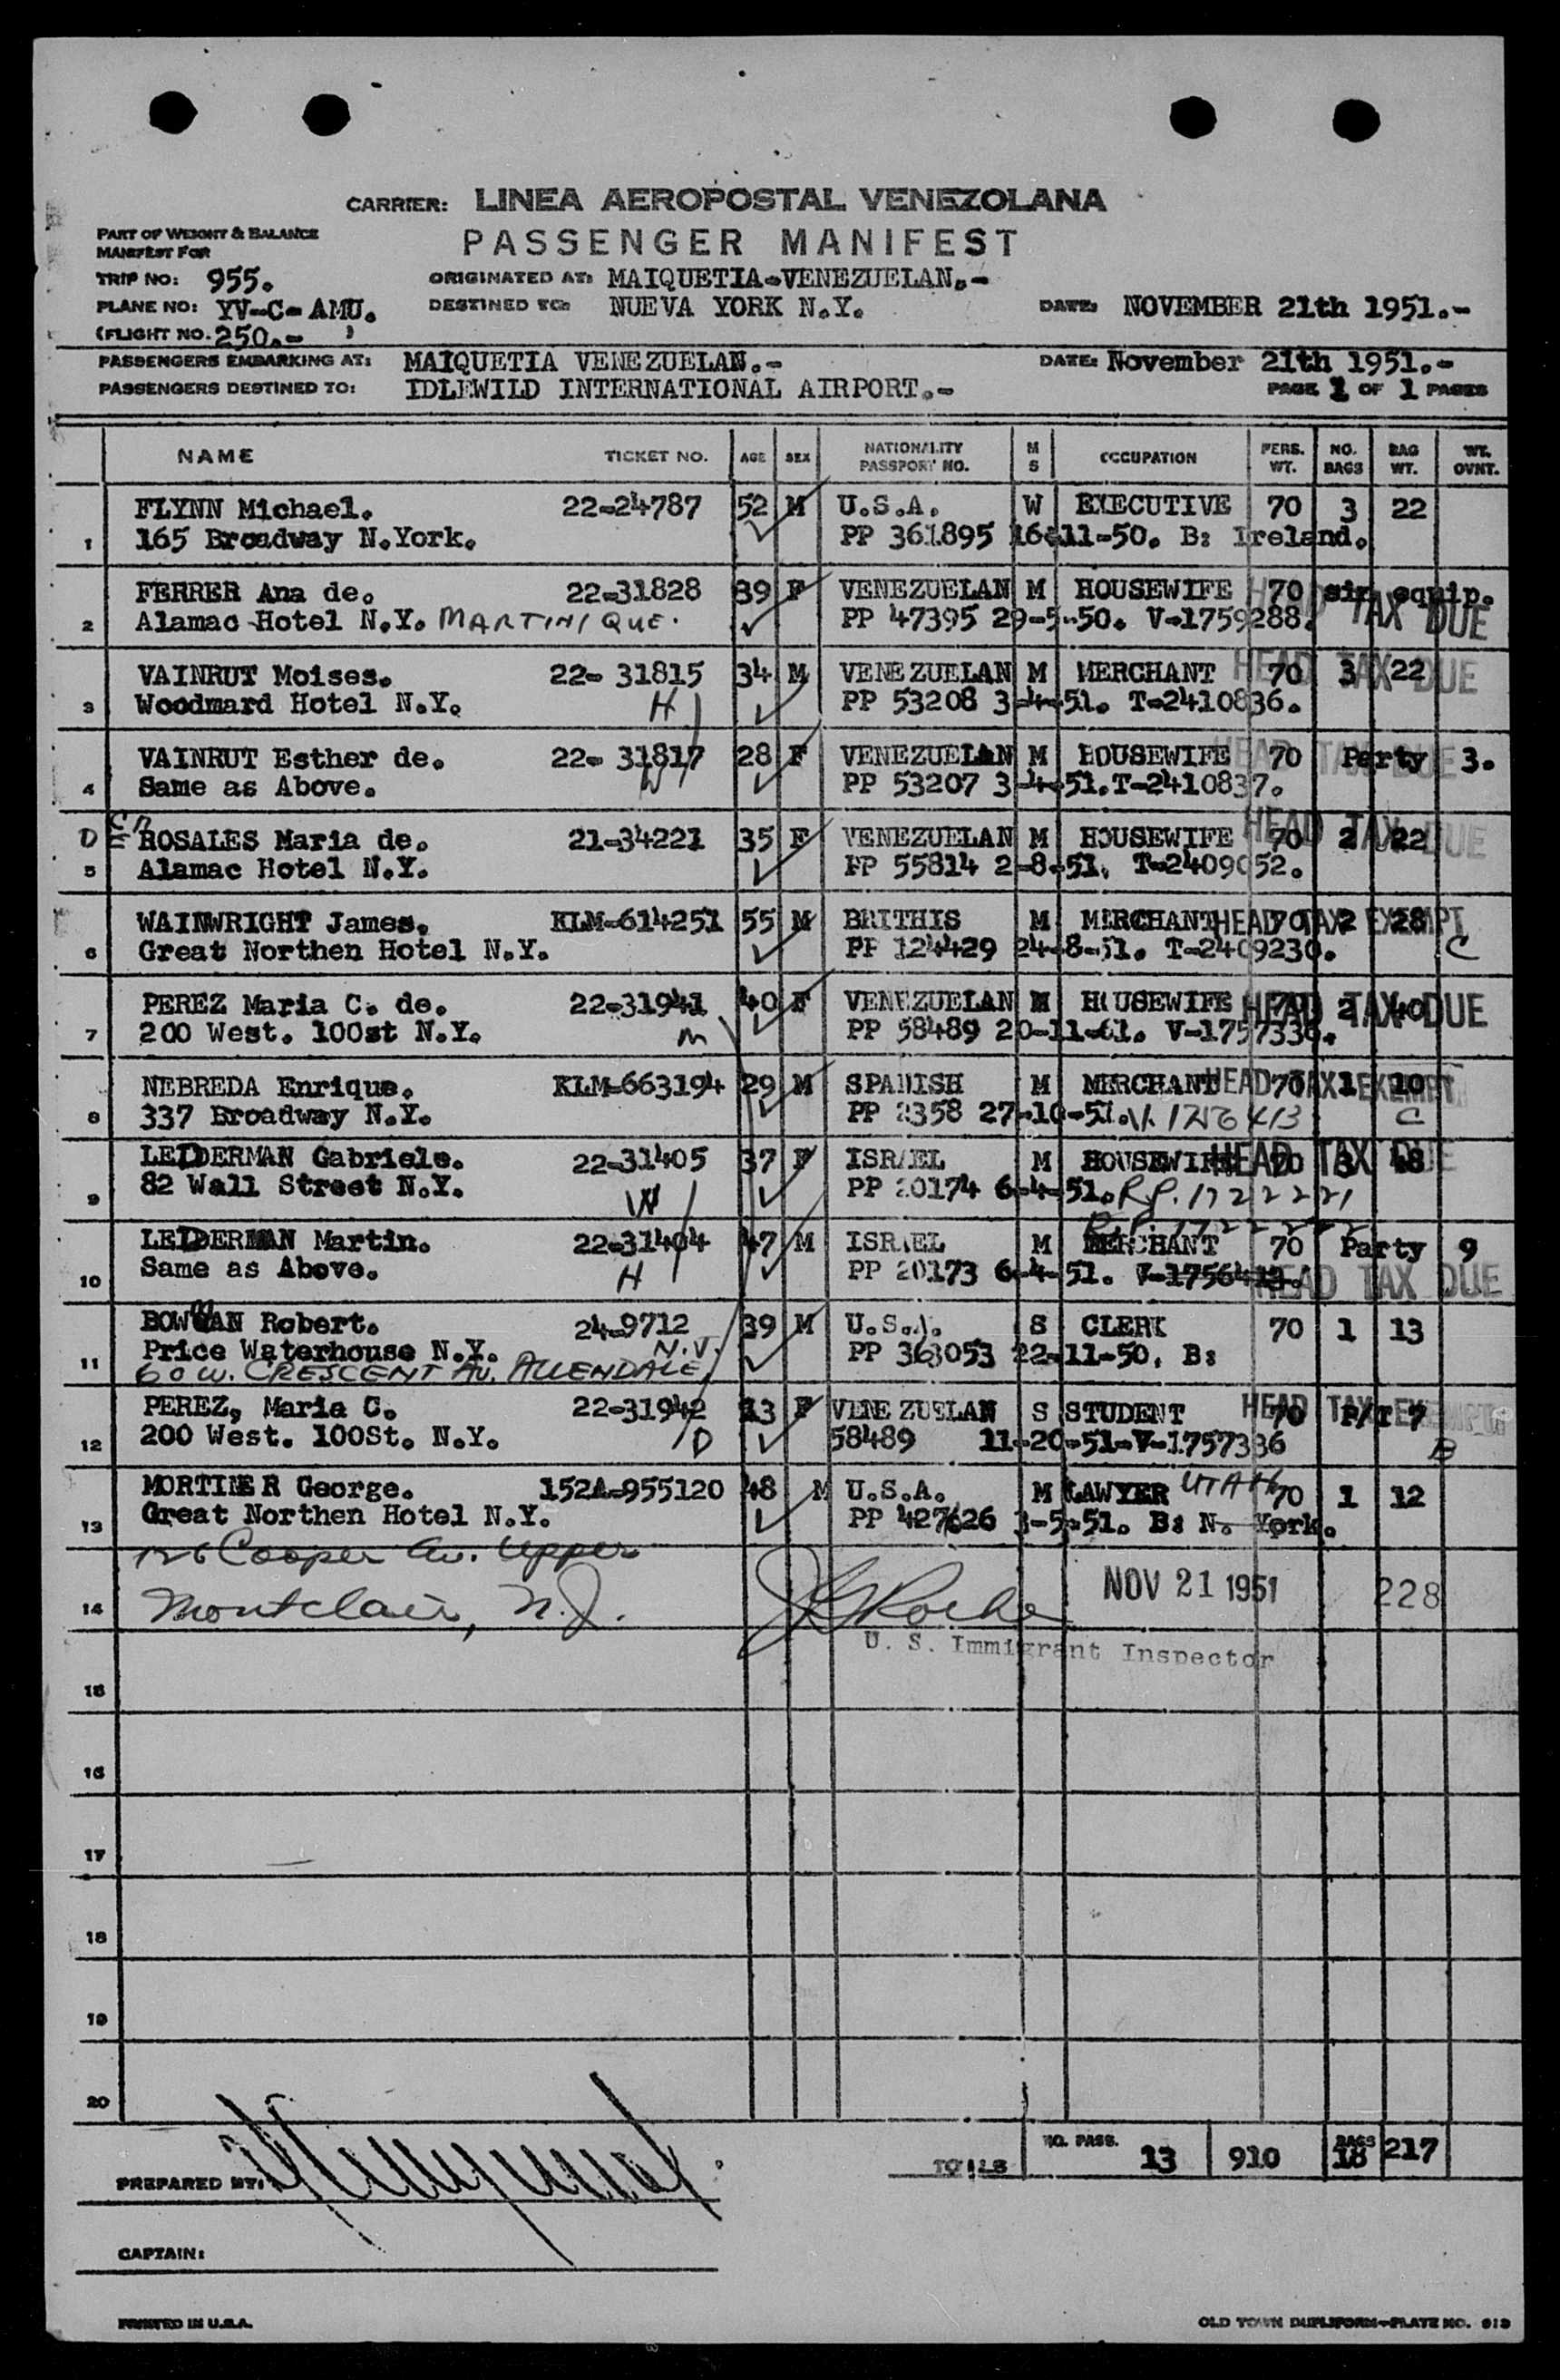 CARRIER: LINEA AEROPOSTAL VENEZOLANA
PART OF WEIGHT & BALANCE
MANIFEST FOR
PASSENGER MANIFEST
TRIP NO: 955.
ORIGINATED AT: MAIQUETIA-VENEZUELAN.-
PLANE NO: YV-C-AMU.
DESTINED TO: NUEVA YORK N.Y.
DATE: NOVEMBER 21th 1951.-
(FLIGHT NO. 250.- )
PASSENGERS EMBARKING AT: MAIQUETIA VENEZUELAN.-
DATE: November 21th 1951.-
PASSENGERS DESTINED TO: IDLEWILD INTERNATIONAL AIRPORT.-
PAGE 1 OF 1 PAGES
NAME TICKET NO. AGE SEX NATIONALITY PASSPORT NO. M S OCCUPATION PERS. WT. NO. BAGS BAG WT. WT. OVNT.
FLYNN Michael. 22-24787 52 M U.S.A. W EXECUTIVE 70 3 22
1 165 Broadway N.York. PP 361895 16-11-50. B: Ireland.
FERRER Ana de. 22-31828 39 F VENEZUELAN M HOUSEWIFE 70 sin equip.
HEAD TAX DUE
2 Alamac Hotel N.Y. MARTINIQUE. PP 47395 29-5-50. V-1759288.
VAINRUT Moises. 22- 31815 34 M VENEZUELAN M MERCHANT 70 3 22
HEAD TAX DUE
3 Woodmard Hotel N.Y. H PP 53208 3-4-51. T-2410836.
VAINRUT Esther de. 22- 31817 28 F VENEZUELAN M HOUSEWIFE 70 Party 3.
HEAD TAX DUE
4 Same as Above. W PP 53207 3-4-51.T-2410837.
D ROSALES Maria de. 21-34221 35 F VENEZUELAN M HOUSEWIFE 70 2 22
HEAD TAX DUE
5 Alamac Hotel N.Y. PP 55814 2-8-51. T-2409052.
WAINWRIGHT James. KLM-614251 55 M BRITHIS M MERCHANT 70 2 28
HEAD TAX EXEMPT
6 Great Northen Hotel N.Y. PP 124429 24-8-51. T-2409230. C
PEREZ Maria C. de. 22-31941 40 F VENEZUELAN M HOUSEWIFE 70 2 40
HEAD TAX DUE
7 200 West. 100st N.Y. M PP 58489 20-11-61. V-1757336.
NEBREDA Enrique. KLM-663194 29 M SPANISH M MERCHANT 70 1 10
HEAD TAX EXEMPT
8 337 Broadway N.Y. PP 2358 27-10-51. C
LEIDERMAN Gabriele. 22-31405 37 F ISRAEL M HOUSEWIFE 70 3 48
HEAD TAX DUE
9 82 Wall Street N.Y. W PP 20174 6-4-51. R.P. 1722221
R.P. 1722222
LEIDERMAN Martin. 22-31404 47 M ISRAEL M MERCHANT 70 Party 9
10 Same as Above. H PP 20173 6-4-51. V-1756413.
HEAD TAX DUE
BOWMAN Robert. 24-9712 39 M U.S.A. S CLERK 70 1 13
11 Price Waterhouse N.Y. N.J. PP 363053 22-11-50. B:
60 W. CRESCENT AV. ALLENDALE,
PEREZ, Maria C. 22-31942 13 F VENEZUELAN S STUDENT 70 P/T 7
HEAD TAX EXEMPT
12 200 West. 100St. N.Y. D 58489 11-20-51-V-1757336 B
MORTIMER George. 152A-955120 48 M U.S.A. M LAWYER UTAH 70 1 12
13 Great Northen Hotel N.Y. PP 427626 3-5-51. B: N. York.
126 Cooper Av. Upper
14 Montclair, N.J. NOV 21 1951 228
U. S. Immigrant Inspector
15
16
17
18
19
20
TOTALS NO. PASS. 13 910 BAGS 18 217
PREPARED BY:
CAPTAIN:
PRINTED IN U.S.A.
OLD TOWN DUPLIFORM-PLATE NO. 913